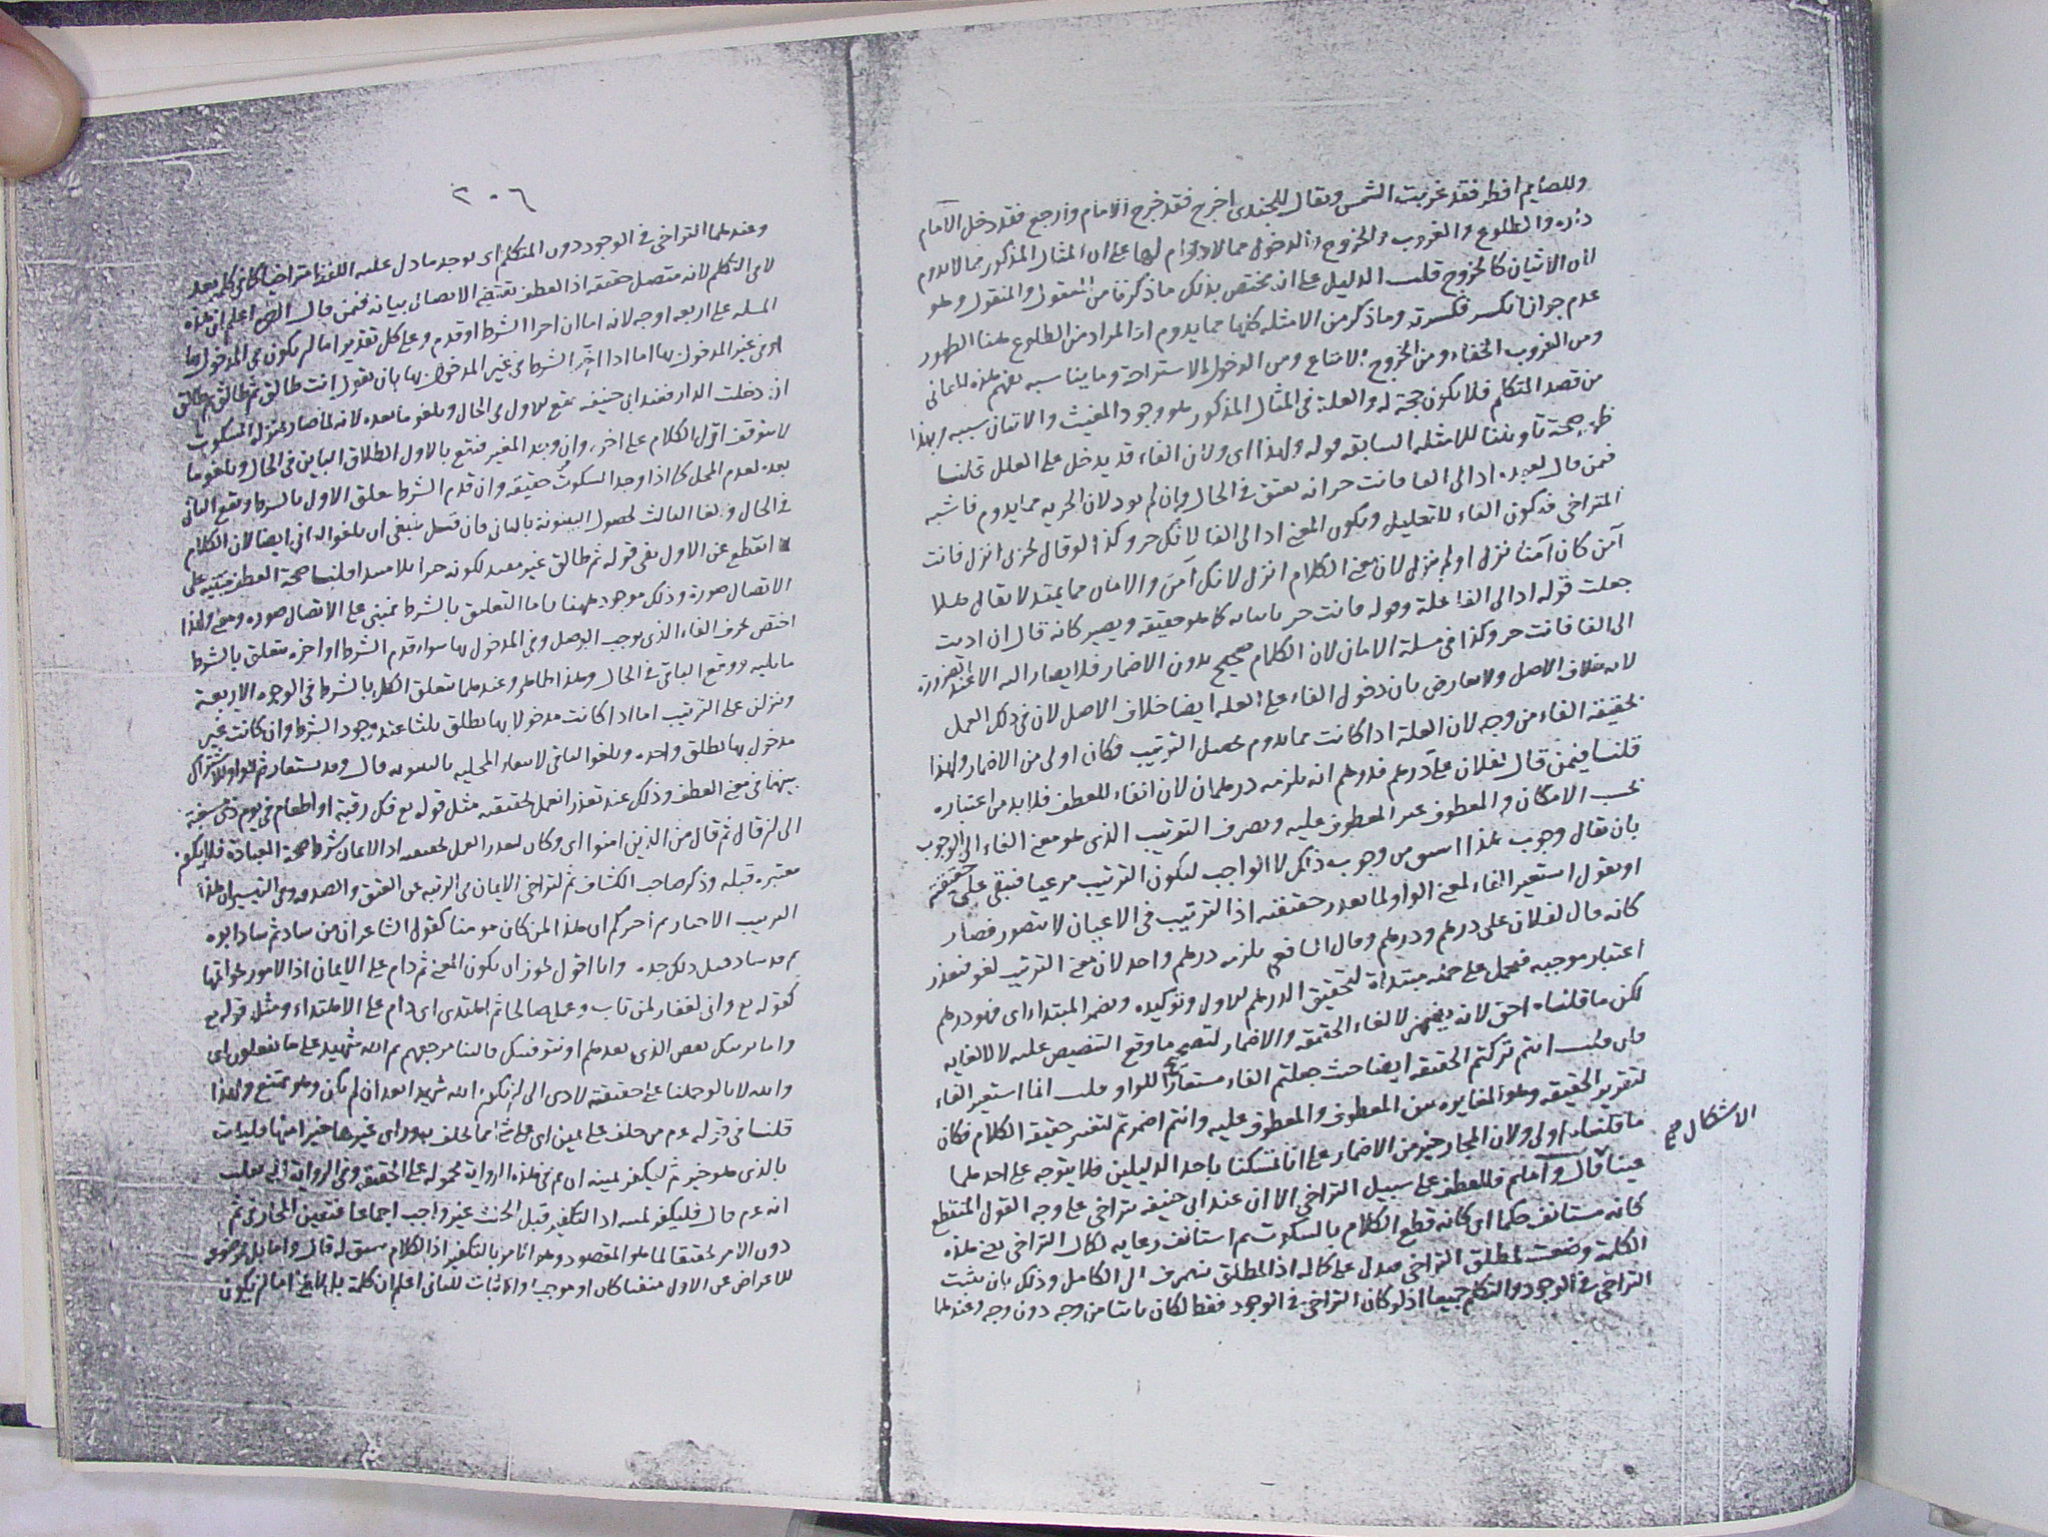 وللصايم افطر فقد غربت الشمس ويقال للجندى اخرج فقد خرج الامام وارجع فقد دخل الامام
داره والطلوع والغروب والخروج والدخول مما لا دوام لها على ان المثال المذكور مما لا يدوم
لان الاتيان كالخروج قلت الدليل على انه مختص بذلك ما ذكرنا من المعقول والمنقول وهو
عدم جواز انكسر فكسرته وما ذكر من الامثله كلها مما يدوم اذ المراد من الطلوع ههنا الظهور
ومن الغروب الخفاء ومن الخروج الامتاع ومن الدخول الاستراحة وما يناسبه يفهم هذه المعانى
من قصد المتكلم فلا يكون حجة له والعلة فى المثال المذكور هو وجود المغيث والاتيان سببه وبهذا
ظهر صحة تاويلنا للامثله السابقه قوله ولهذا اى ولان الفاء قد يدخل على العلل قلنا
فمن قال لعبده اد الى الفا فانت حر انه يعتق فى الحال وان لم يود لان الحريه مما يدوم فاشبه
المتراخى فتكون الفاء للتعليل ويكون المعنى اد الى الفا لانك حر وكذا لو قال لحربى انزل فانت
آمن كان آمنا نزل او لم ينزل لان معنى الكلام انزل لانك آمن والامان مما يمتد لا يقال هلا
جعلت قوله اد الى الفا علة وقوله فانت حر كما هو حقيقه ويصير كانه قال ان اديت
الى الفا فانت حر وكذا فى مسلة الامان لان الكلام صحيح بدون الاضمار فلا يصار اليه الا عند الضرورة
لانه خلاف الاصل ولا يعارض بان دخول الفاء على العله ايضا خلاف الاصل لان فى ذلك العمل
بحقيقة الفاء من وجه لان العلة اذا كانت مما يدوم يحصل الترتيب فكان اولى من الاضمار ولهذا
قلنا فيمن قال لفلان على درهم فدرهم انه يلزمه درهمان لان الفاء للعطف فلا بد من اعتباره
بحسب الامكان والمعطوف غير المعطوف عليه ويصرف الترتيب الذى هو معنى الفاء الى الوجوب
بان يقال وجوب هذا اسبق من وجوب ذاك لا الواجب ليكون الترتيب مرعيا فيبقى على حقيقته
او نقول استعير الفاء لمعنى الواو لما تعذر حقيقته اذ الترتيب فى الاعيان لا يتصور فصار
كانه قال لفلان على درهم ودرهم وقال الشافعى يلزمه درهم واحد لان معنى الترتيب لغو فتعذر
اعتبار موجبه فيحمل على جمله مبتداة لتحقيق الدرهم الاول وتوكيده ويضمر المبتدا اى فهو درهم
لكن ما قلناه احق لانه يضمر لالغاء الحقيقه والاضمار لتصحيح ما وقع التنصيص عليه لا لالغايه
فان قلت انتم تركتم الحقيقه ايضا حيث جعلتم الفاء مستعارا للواو قلت انما استعير الفاء
لتقرير الحقيقه وهو المغايره بين المعطوف والمعطوف عليه وانتم اضمرتم لتغيير حقيقة الكلام فكان
ما قلناه اولى ولان المجاز خير من الاضمار على انا تمسكنا باحد الدليلين فلا يتوجه على احدهما
الاشكال صح
عينا قال وآما ثم فللعطف على سبيل التراخى الا ان عند ابى حنيفه تراخى على وجه القول المنقطع
كانه مستانف حكما اى كانه قطع الكلام بالسكوت ثم استانف رعايه لكمال التراخى يعنى هذه
الكلمة وضعت لمطلق التراخى فيدل على كماله اذ المطلق ينصرف الى الكامل وذلك بان يثبت
التراخى فى الوجود والتكلم جميعا اذ لو كان التراخى فى الوجود فقط لكان ثابتا من وجه دون وجه وعندهما
٢٠٦
وعندهما التراخى فى الوجود دون المتكلم اى يوجد ما دل عليه اللفظ متراخيا كما فى كلمة بعد
لا فى التكلم لانه متصل حقيقه اذ العطف يقتضى الاتصال بيانه فيمن قال الخ اعلم ان هذه
المسله على اربعه اوجه لانه اما ان اخر الشرط او قدم وعلى كل تقدير اما ان يكون فى المدخول بها
او فى غير المدخول بها اما اذا اخر الشرط فى غير المدخول بها بان يقول انت طالق ثم طالق ثم طالق
ان دخلت الدار فعند ابى حنيفه يقع الاول فى الحال ويلغو ما بعده لانه لما صار بمنزله السكوت
لا يتوقف اول الكلام على اخره وان وجد المغير فيقع بالاول الطلاق الباين فى الحال ويلغو ما
بعده لعدم المحل كما اذا وجد السكوت حقيقه وان قدم الشرط تعلق الاول بالشرط ووقع الثانى
فى الحال ولغا الثالث لحصول البينونة بالثانى فان قيل ينبغى ان يلغو الثانى ايضا لان الكلام
انقطع عن الاول بقى قوله ثم طالق غير مفيد لكونه خبرا بلا مبتدا قلنا صحة العطف مبتنيه على
الاتصال صورة وذلك موجود ههنا واما التعليق بالشرط فمبنى على الاتصال صوره ومعنى ولهذا
اختص بحرف الفاء الذى يوجب الوصل وفى المدخول بها سواء قدم الشرط او اخره يتعلق بالشرط
ما يليه ووقع الباقى فى الحال وهذا ظاهر وعندهما يتعلق الكل بالشرط فى الوجوه الاربعة
ونزلن على الترتيب اما اذا كانت مدخولا بها تطلق ثلثا عند وجود الشرط وان كانت غير
مدخول بها تطلق واحده ويلغو الباقى لانتفاء المحليه بالبينونه قال وقد يستعار ثم للواو للاشتراك
بينهما فى معنى العطف وذلك عند تعذر العمل بحقيقته مثل قوله تع فك رقبة او اطعام فى يوم ذى مسغبة
الى ان قال ثم كان من الذين امنوا اى وكان لتعذر العمل بحقيقته اذ الايمان شرط صحة العبادة فلا يكون
معتبره قبله وذكر صاحب الكشاف ثم لتراخى الايمان فى الرتبه عن العتق والصدقه وفى التيسير ان هذا
الترتيب الاخبار ثم اخبركم ان هذا لمن كان مومنا كقول الشاعر ان من ساد ثم ساد ابوه
ثم قد ساد قبل ذلك جده وانا اقول يجوز ان يكون المعنى ثم دام على الايمان اذ الامور بخواتيمها
كقوله تع وانى لغفار لمن تاب وعمل صالحا ثم اهتدى اى دام على الاهتداء ومثل قوله تع
واما نرينك بعض الذى نعدهم او نتوفينك فالينا مرجعهم ثم الله شهيد على ما يفعلون اى
والله لانا لو حملنا على حقيقته لادى الى ان يكون الله شهيدا بعد ان لم يكن وهو ممتنع ولهذا
قلنا فى قوله عم من حلف على يمين اى على شئ مما يحلف به وراى غيرها خيرا منها فليات
بالذى هو خير ثم ليكفر يمينه ان ثم فى هذه الرواية محموله على الحقيقه وفى الرواية التى نقلت
انه عم قال فليكفر يمينه اذ التكفير قبل الحنث غير واجب اجماعا فتعين المجاز فى ثم
دون الامر تحقيقا لما هو المقصود وهو الامر بالتكفير اذ الكلام سيق له قال واما بل فموضوعه
للاعراض عن الاول منفيا كان او موجبا والاثبات للثانى اعلم ان كلمة بل لا يخ اما ان يكون